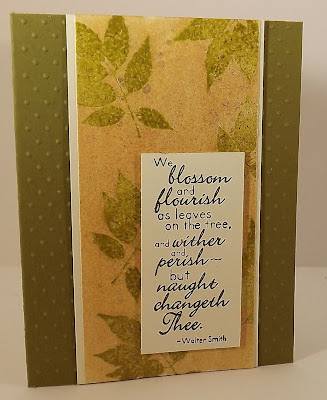 We
blossom
and
flourish
as leaves
on the tree,
and wither
and
perish—
but
naught
changeth
Thee.
-Walter Smith